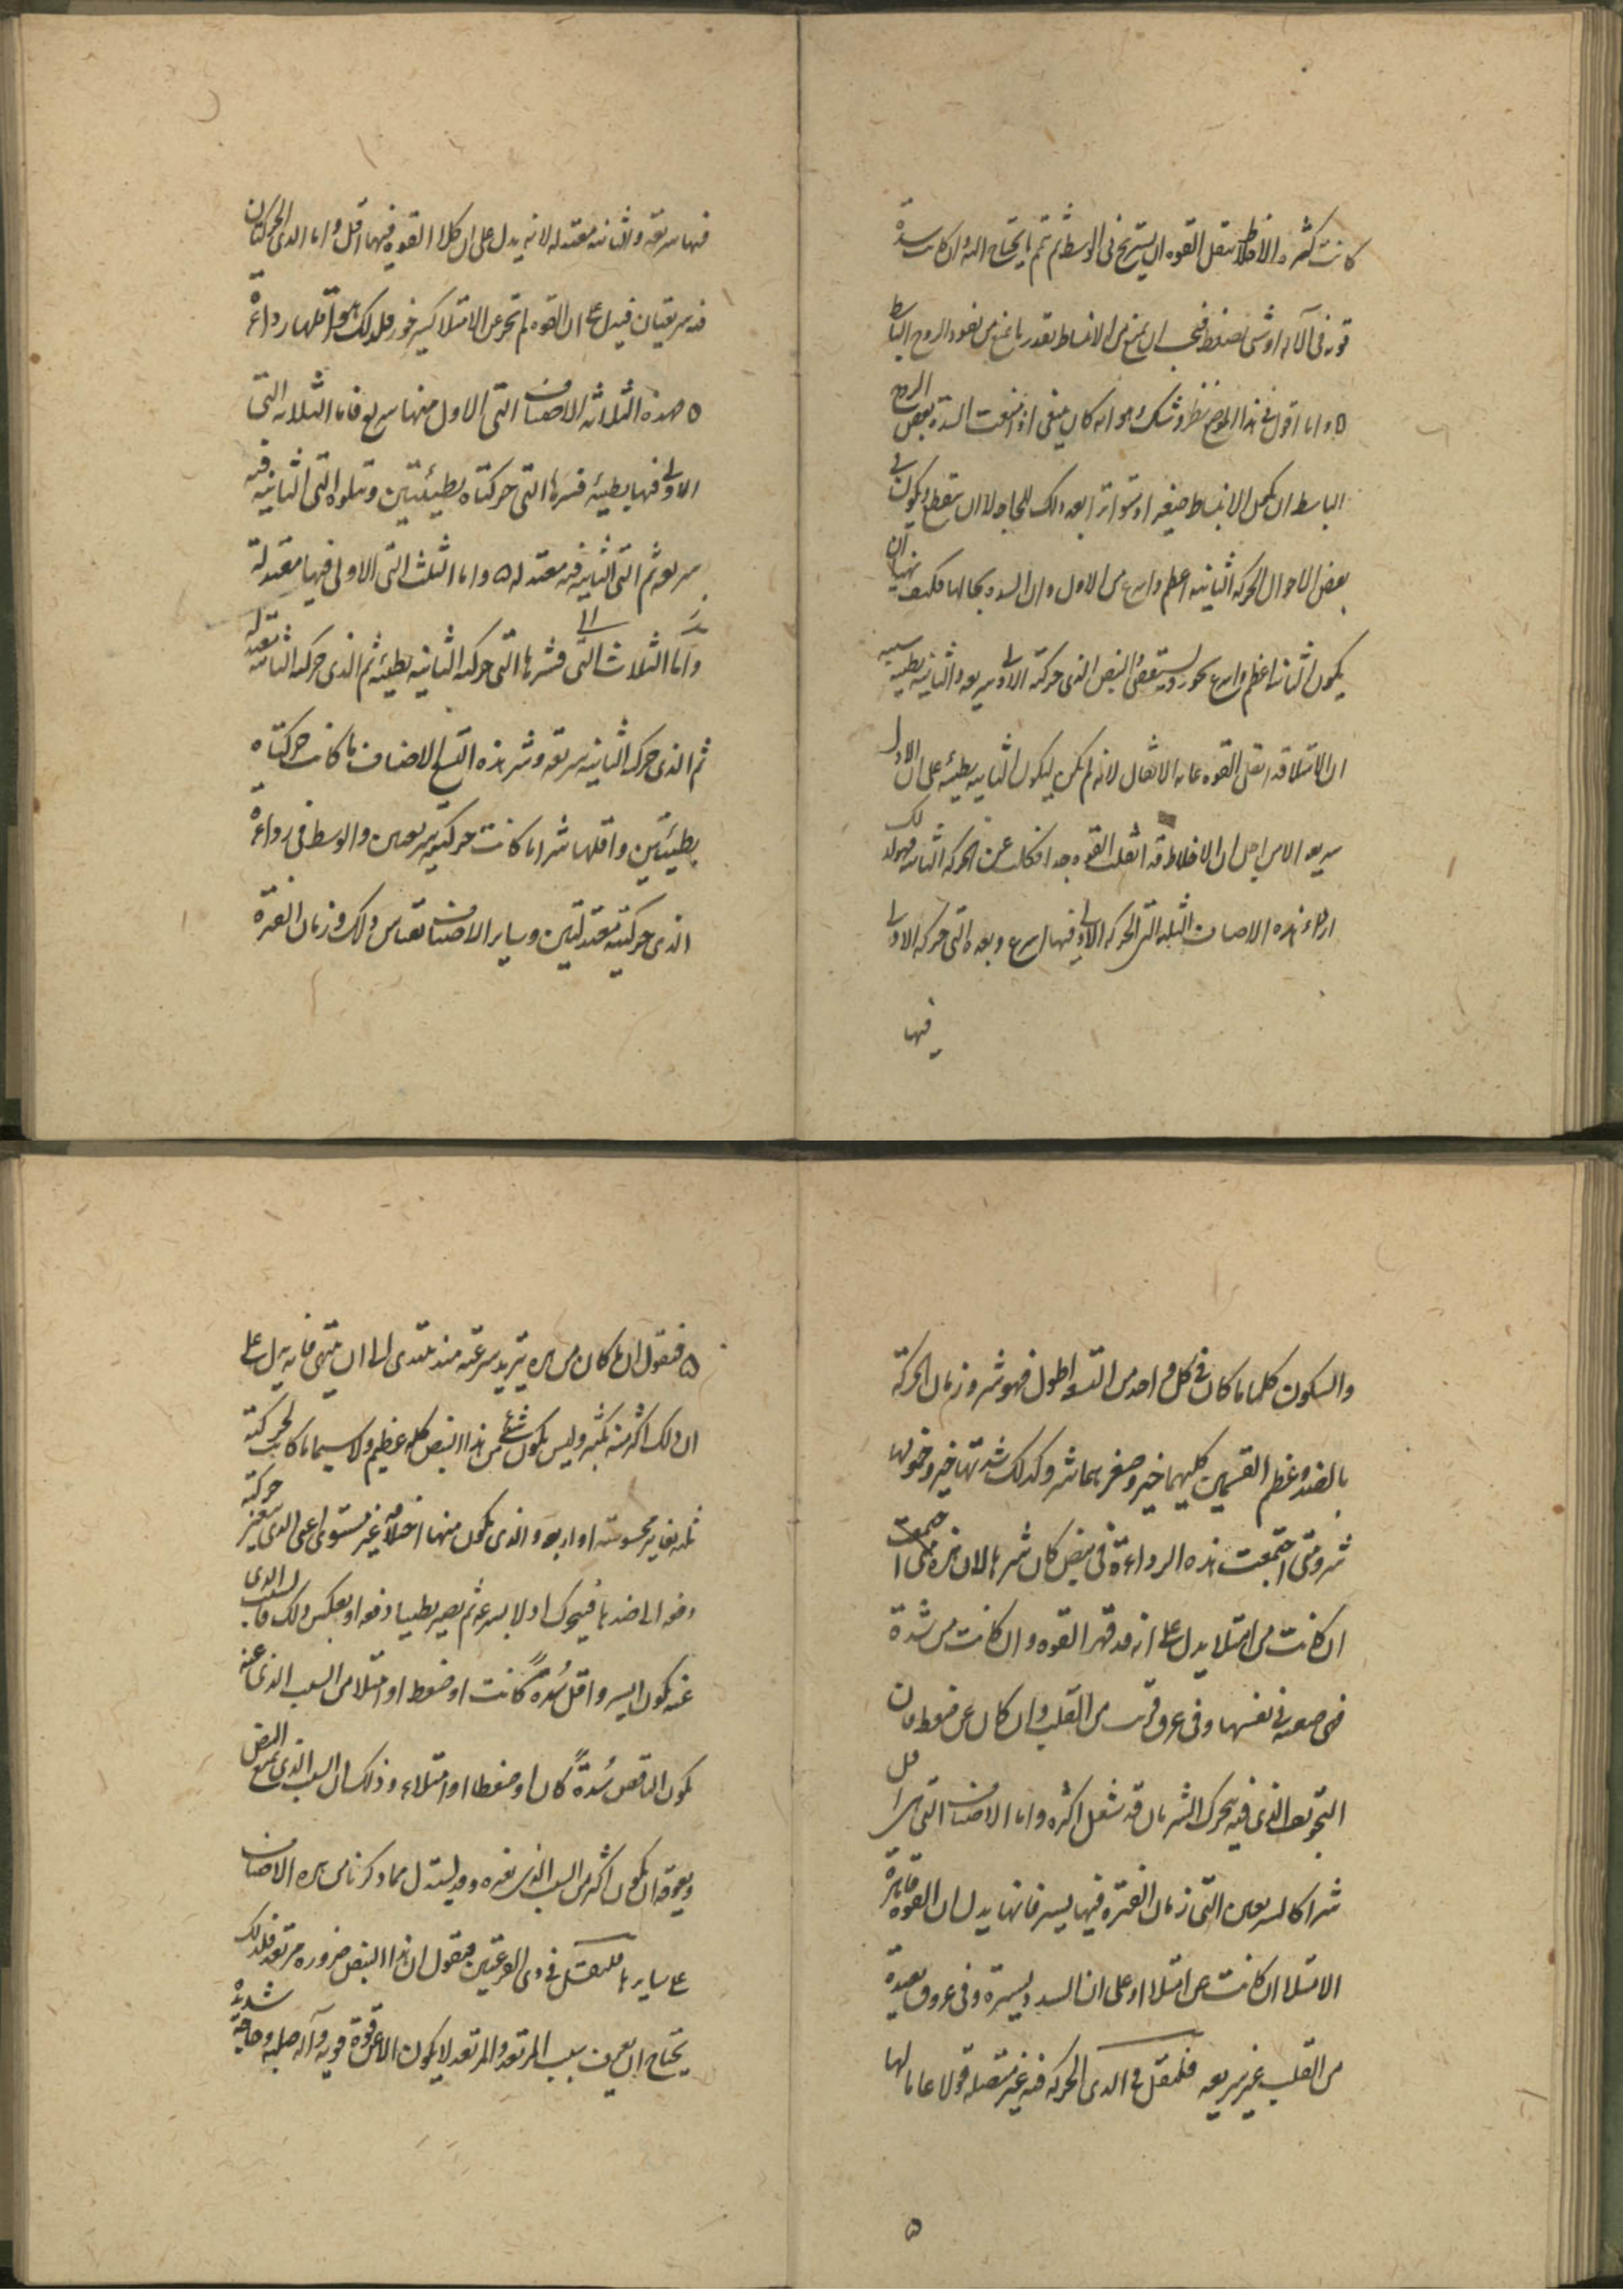 كانت كثرة الاخلاط تثقل القوه ان يستريح فى الوسط ثم تتم ما يحتاج اليه وان كانت سدة
قويه فى الآله او شى يضغط فيجب ان يمنع من الانبساط بقدر ما يمنع من نفوذ الروح الباسط
ه واما اقول فى هذا الموضع نظر وشك وهو انه كان ينبغى اذ امنعت السدة بعض الروح
الباسط ان يكمل الانبساط صغيرا ومتواترا بعد ذلك للحاجه لا ان ينقطع ويكون فى
بعض الاحوال الحركه الثانيه اعظم واسرع من الاول وان السدد بحالها فكيف تهيأ ان
يكون الثانيه اعظم واسرع يستقصى النبض الذى حركته الاولى سريعه والثانيه بطيئه سببه
ان الامتلا قد اثقل القوه غايه الاثقال لانه لم يكن ليكون الثانيه بطيئه على ان الاول
سريعه الا من اجل ان الاخلاط قد اثقلت القوه جدا فكلت عن الحركه الثانيه فهو لذلك
اردأ هذه الاصناف الثلثه التى الحركه الاولى فيها اسرع وبعده التى حركه الاولى
فيها
فيها سريعه والثانيه معتدله لانه يدل على ان كلال القوه فيهما اقل واما الذى الحركتان
فيه سريعتان فيدل على ان القوه لم تخر عن الامتلا كبير خور فلذلك هو اقلها رداءة
ه هذه الثلاثه الاصناف التى الاول منها سريع فاما الثلاثه التى
الاولى فيها بطيئه فشرها التى حركتاه بطيئتين وتتلوه التى الثانيه فيه
سريعه ثم التى الثانيه فيه معتدله ه واما الثلث التى الاولى فيها معتدلة
واما الثلاث التى فشرها التى حركته الثانيه بطيئه ثم الذى حركته الثانيه معتدله
ثم الذى حركته الثانيه سريعه وشر هذه التسع الاصناف ما كانت حركتاه
بطيئتين واقلها شرا ما كانت حركتيه سريعتين والوسط فى رداءة
الذى حركتيه معتدلتين وساير الاصناف تقاس وذلك وزمان الفترة
والسكون كلما كان فى كل واحد من التسع اطول فهو شر وزمان الحركة
بالضد وعظم القسمين كليهما خير وصغرهما شر وكذلك شدتها خير وخورها
شر ومتى اجتمعت هذه الرداءة فى نبض كان شر لان هذه متى اجتمعت
ان كانت من امتلا يدل على انه قد قهر القوه وان كانت من سدة
فهى صعبه فى نفسها وفى عروق قريب من القلب وان كان عن ضغط فان
التجويف الذى فيه يتحرك الشريان قد شغل اكثره واما الاصناف التى هى اقل
شرا كالسريعين التى زمان الفترة فيها يسير فانها يدل ان القوه قاهرة
الامتلا ان كانت عن امتلا او على ان السدد يسيرة وفى عروق بعيدة
من القلب غير سريعه فلنقل فى الذى الحركه فيه غير متصله قولا عاما لها
ه
ه فنقول ان ما كان من هذه يتزيد سرعته منذ يبتدى الى ان ينتهى فانه يدل على
ان ذلك اكثر منه بكثير وليس يكون شئ من هذا النبض كله عظيم ولا سيما ما كانت لحركته
ثلث تغايير محسوسته او اربعه والذى يكون منها اختلافه غير مستوى اعنى الذى يتغير حركته
دفعه الى ضدها فيتحرك اولا بسرعه ثم يصير بطيئا دفعه او بعكس ذلك فالسبب الذى
عنه يكون ايسر واقل سُدةً كانت او ضغط او امتلا من السبب الذى عنه
يكون الناقص سُدةً كان او ضغطا او امتلاء وذلك ان السبب الذى يمنع النبض
ويعوقه ان يكون اكثر من السبب الذى يغيره وقد يستدل مما ذكرنا من هذه الاصناف
على سايرها فلنقل فى ذى القرعتين فنقول ان هذا النبض ضروره مرتعد فلذلك
يحتاج ان يعرف بسبب المرتعد والمرتعد لا يكون الا عن قوة قويه وآله صلبه وحاجة شديدة